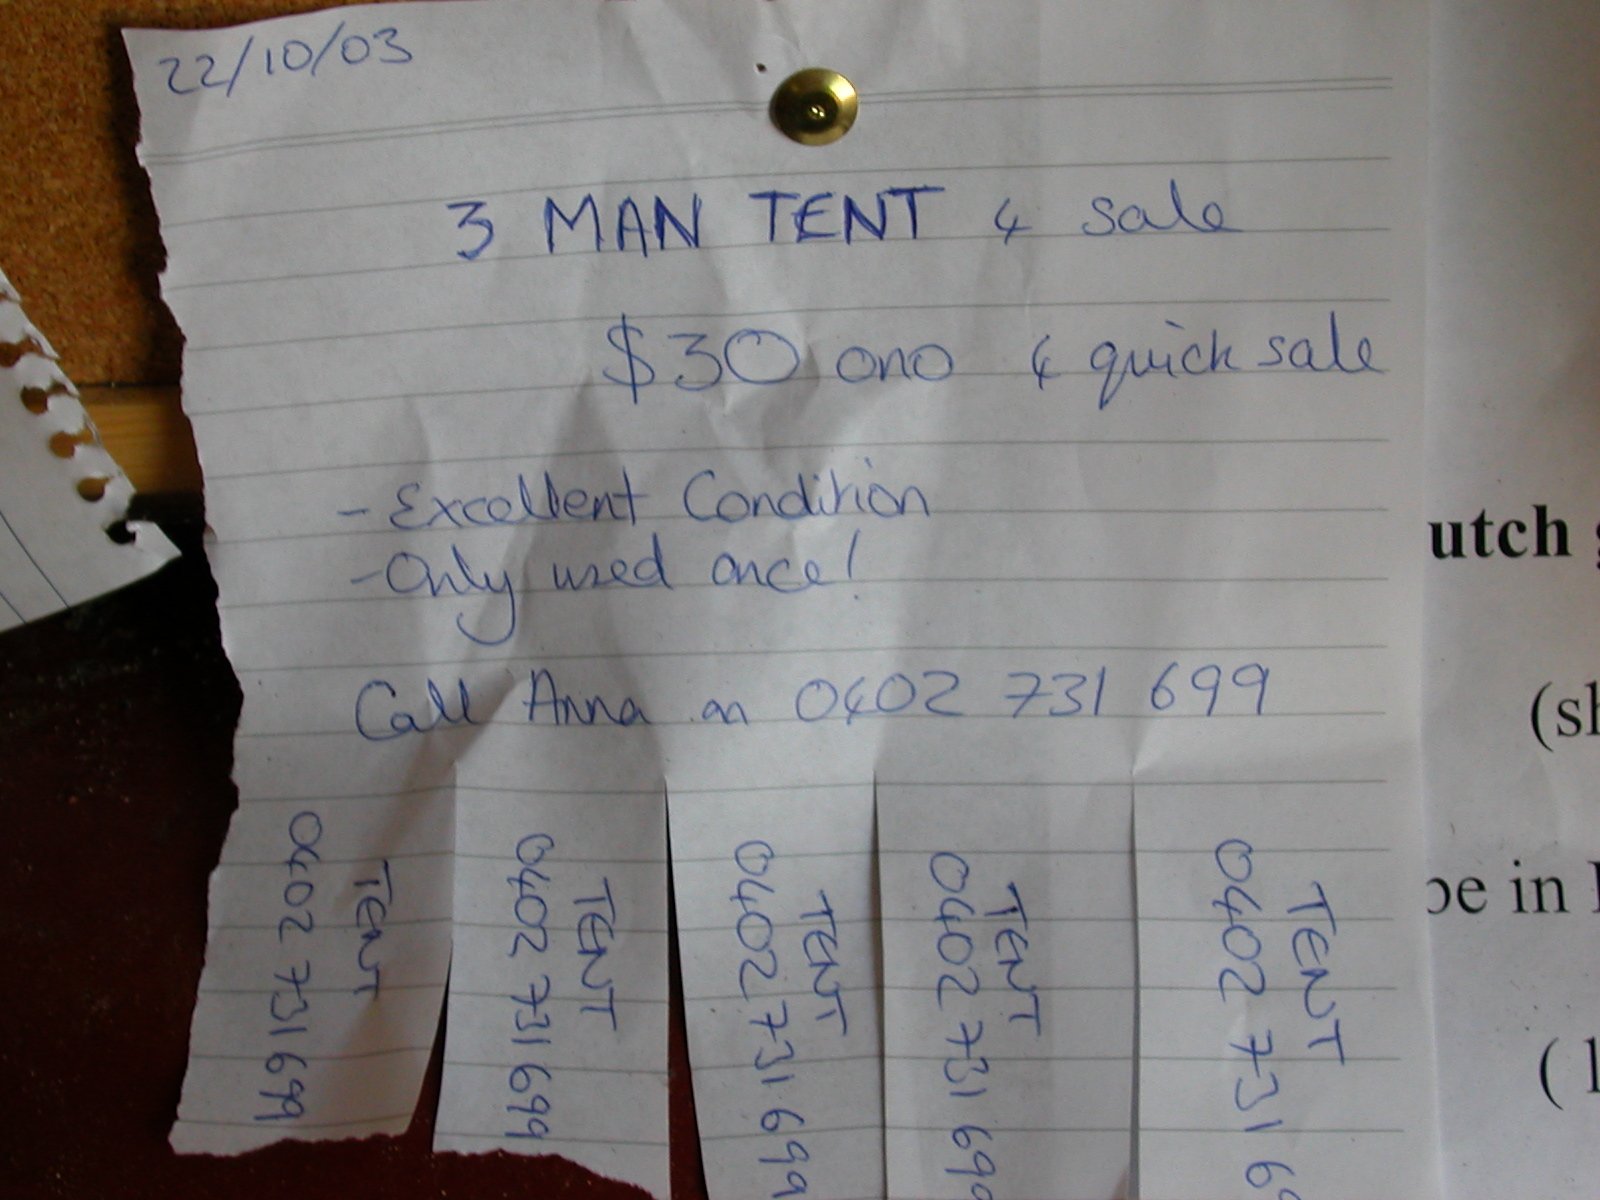 22/10/03
3 MAN TENT 4 sale
$30 ono 4 quick sale
- Excellent Condition
- Only used once!
Call Anna on 0402 731 699
TENT
0402 731 699
TENT
0402 731 699
TENT
0402 731 699
TENT
0402 731 699
TENT
0402 731 69
utch
(sh
be in
(1